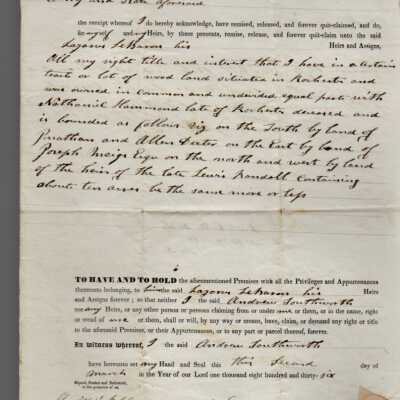 and State aforesaid
the receipt whereof I do hereby acknowledge, have remised, released, and forever quit-claimed, and do,
for myself and my Heirs, by these presents, remise, release, and forever quit-claim unto the said
Lazarus LeBaron his Heirs and Assigns,
All my right title and interest that I have in a certain
tract or lot of wood land situated in Rochester and
was owned in common and undivided equal parts with
Nathaniel Hammond late of Rochester deceased and
is bounded as follows viz on the South by land of
Jonathan and Allen on the East by land of
Joseph Meigs Esqr on the north and west by land
of the heirs of the late Lewis Randall Containing
about ten acres be the same more or less
TO HAVE AND TO HOLD the aforementioned Premises with all the Privileges and Appurtenances
thereunto belonging, to him the said Lazarus LeBaron his Heirs
and Assigns forever; so that neither I the said Andrew Southworth
nor my Heirs, or any other person or persons claiming from or under me or them, or in the name, right
or stead of me or them, shall or will, by any way or means, have, claim, or demand any right or title
to the aforesaid Premises, or their Appurtenances, or to any part or parcel thereof, forever.
In witness whereof, I the said Andrew Southworth
have hereunto set my Hand and Seal this Second day of
March in the Year of our Lord one thousand eight hundred and thirty-six
Signed, Sealed and Delivered,
in the presence of us,